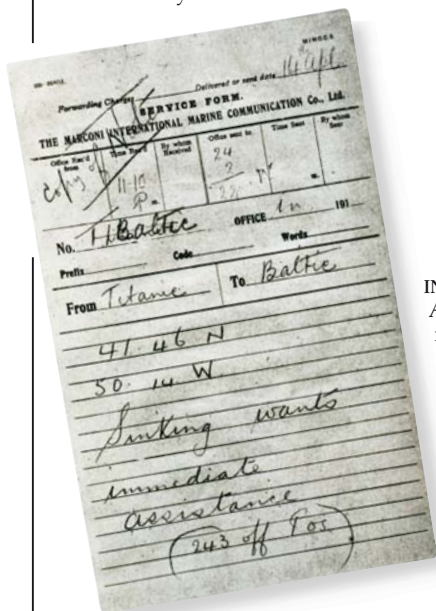 Delivered or send date 14 Apl
Forwarding Charge
SERVICE FORM.
THE MARCONI INTERNATIONAL MARINE COMMUNICATION Co., Ltd.
Office Rec'd from Time Rec'd By whom Received Office sent to Time Sent By whom Sent
Copy of 11-10 24
P m 2
No. Baltic OFFICE 191
Prefix Code Words
From Titanic To Baltic
41.46 N
50.14 W
Sinking wants
immediate
assistance
(243 off Pos)